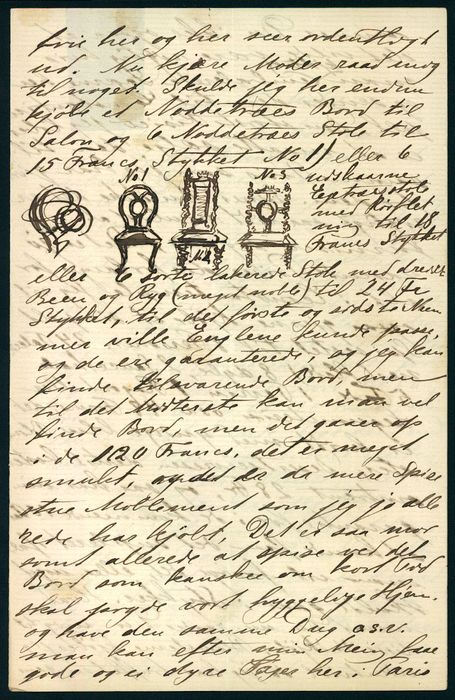 her og her seer ordentligt
ud. Nu kjære Moder raad mig
til noget. Skulde jeg her endnu
kjøbe et Nøddetræes Bord til
Salon og 6 Nøddetræes Stole til
15 Francs Stykket No 1) eller 6
No 1
No 3
udskaarne
Extrastole
med
til 18
Francs Stykket
No 2
eller 6 sorte lakerede Stole med dreiet
Been og Ryg (meget noble) til 24 fr
Stykket, til det første og sidste
mer ville Englene kunde passe,
og de ere garanterede, og jeg kan
finde tilsvarende Bord, men
til det midterste kan man vel
finde Bord, men det gaaer op
i de 120 Francs, det er meget
smukt, det da mere Spise
stue Møblement som jeg jo alle
rede har kjøbt, Det er saa mor
somt allerede at spise ved det
Bord som kanskee om kort Tid
skal pryde vort hyggelige Hjem.
og have den samme Dug o.s.v.
man kan efter min Mening faae
gode og ei dyre her i Paris